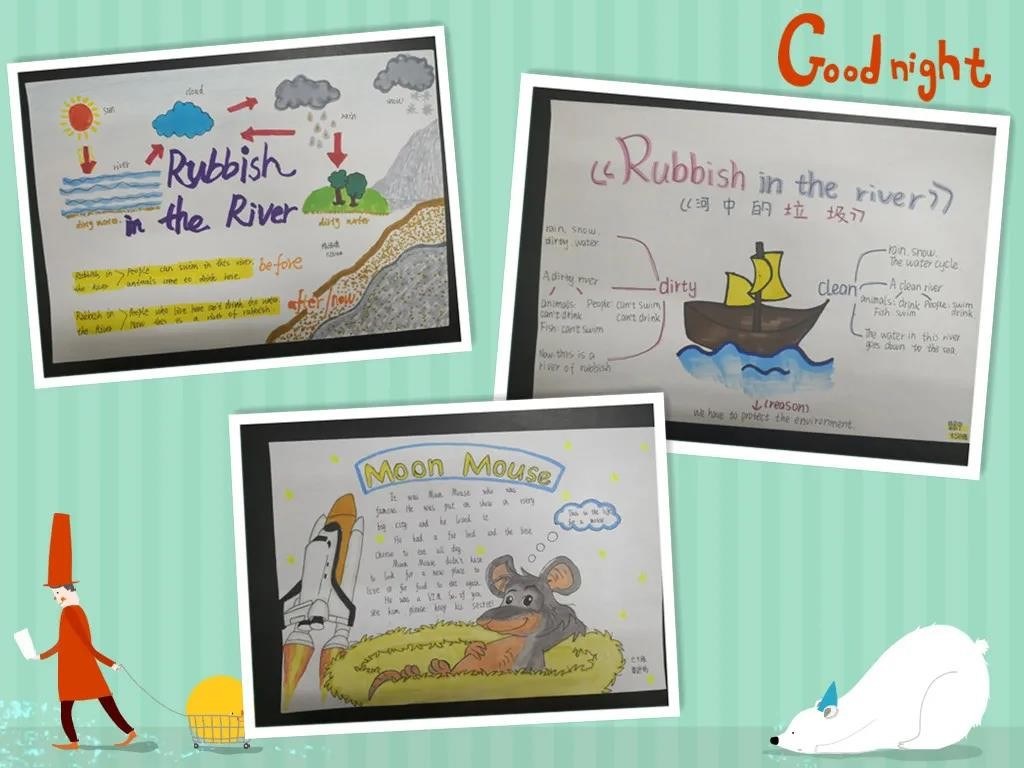 Good night
sun
cloud
rain
snow
river
Rubbish
in the River
dirty water
dirty water
Rubbish in > People can swim in this river. before
the river animals come to drink here.
Rubbish in > People who live here can't drink the water after/now
the River Now this is a river of rubbish.
《Rubbish in the river》
《河中的垃圾》
rain, snow,
dirty water
dirty
A dirty river
animals: People: can't swim
can't drink can't drink
Fish: can't swim
Now this is a
river of rubbish
clean
rain, snow.
The water cycle
A clean river
animals: drink People: swim
Fish: swim drink
The water in this river
goes down to the sea.
↓(reason)
We have to protect the environment.
Moon Mouse
It was Moon Mouse who was
famous. He was put on show in every
big city and he loved it
He had a fur bed and the best
Cheese to eat all day.
Moon Mouse didn't have
to look for a new place to
live or for food to eat again.
He was a V.I.M. So, if you
see him, please keep his secret!
This is the life
for a mouse